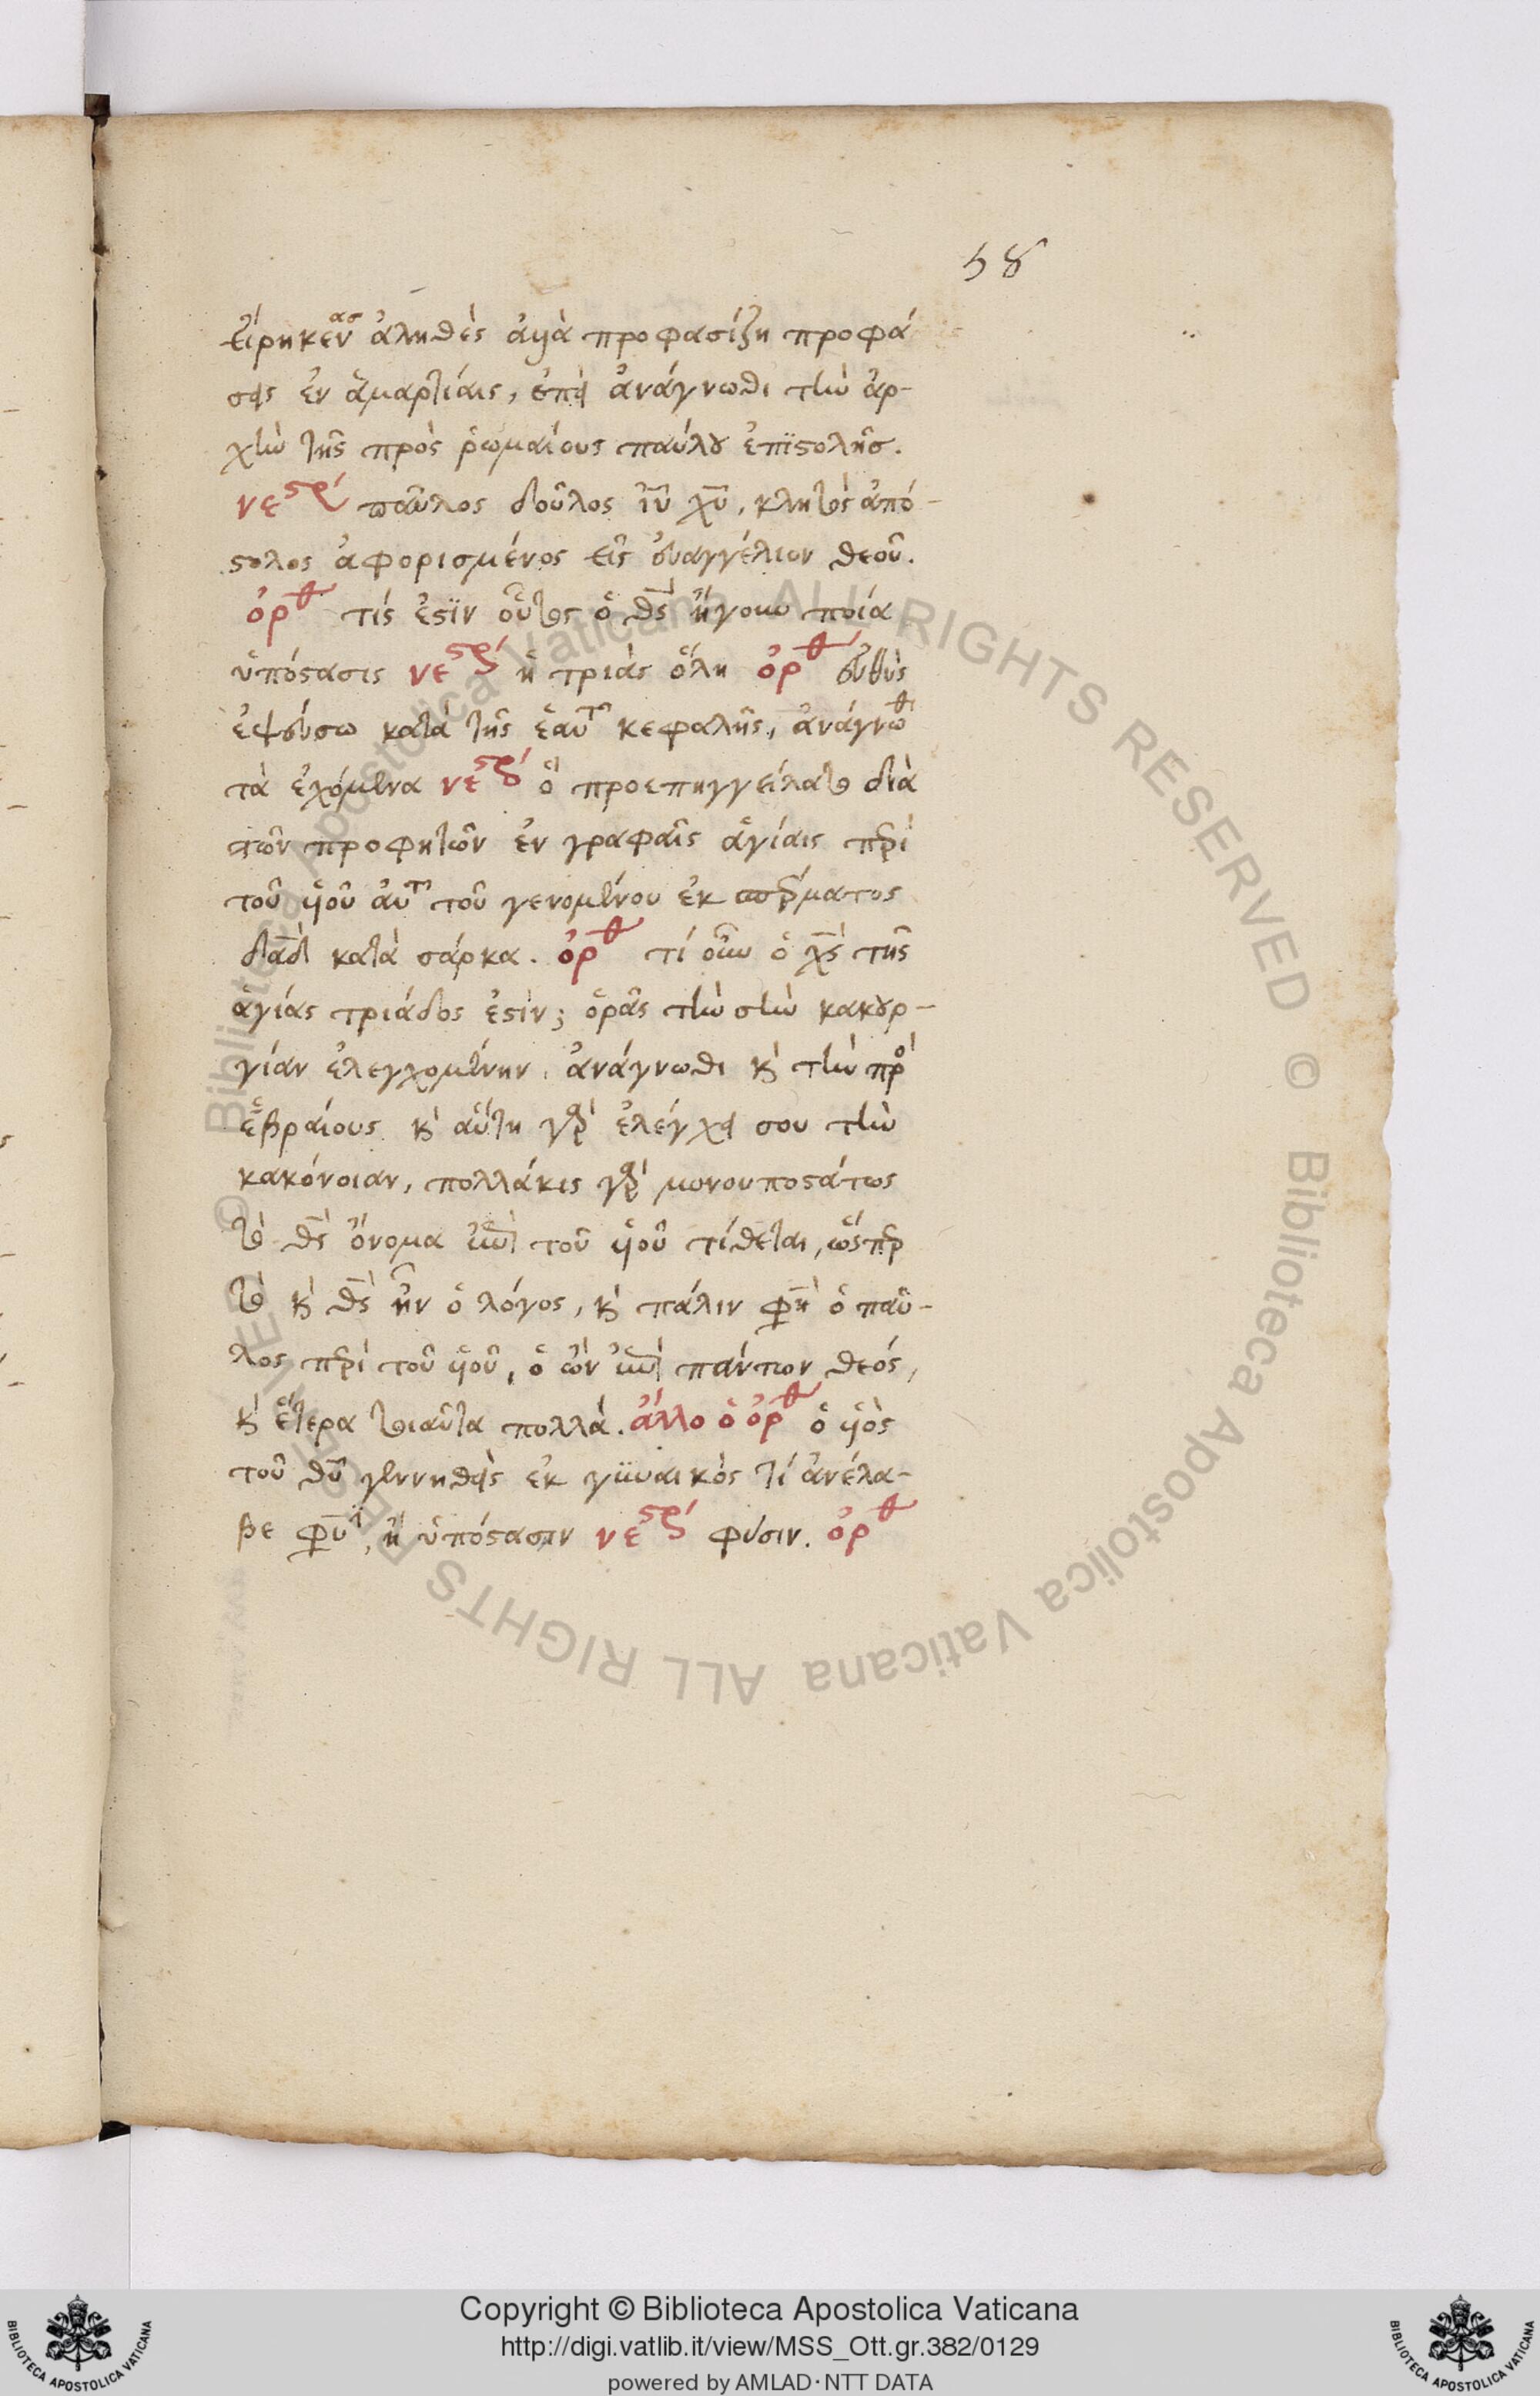 58
εἴρηκεν ἀληθὲς ἀλλὰ προφασίζη προφά
σεις ἐν ἁμαρτίαις, ἐπεὶ ἀνάγνωθι τὴν ἀρ-
χὴν τῆς πρὸς ῥωμαίους παύλου ἐπιστολῆσ.
νεστρ παῦλος δοῦλος ἰῦ χῦ, κλητὸς ἀπό-
στολος ἀφορισμένος εἰς εὐαγγέλιον θεοῦ.
ὀρθ τίς ἐστιν οὗτος ὁ θς ἤγουν ποία
ὑπόστασις νεστρ ἡ τριὰς ὅλη ὀρθ εὐθὺς
ἐψεύσω κατὰ τῆς ἑαυτ κεφαλῆς, ἀνάγνωθ
τὰ ἐχόμενα νεστρ ὃ προεπηγγείλατο διὰ
τῶν προφητῶν ἐν γραφαῖς ἁγίαις περὶ
τοῦ υἱοῦ αὐτ τοῦ γενομένου ἐκ σπέρματος
δαδ κατὰ σάρκα. ὀρθ τί οὖν ὁ χς τῆς
ἁγίας τριάδος ἐστίν; ὁρᾶς τὴν σὴν κακουρ-
γίαν ἐλεγχομένην. ἀνάγνωθι καὶ τὴν πρὸ
ἑβραίους καὶ αὕτη γὰρ ἐλέγχει σου τὴν
κακόνοιαν, πολλάκις γὰρ μονουποστάτως
τὸ θς ὄνομα ἐπὶ τοῦ υἱοῦ τίθεται, ὥσπερ
τὸ καὶ θς ἦν ὁ λόγος, καὶ πάλιν φη ὁ παῦ-
λος περὶ τοῦ υἱοῦ, ὁ ὢν ἐπὶ πάντων θεός,
καὶ ἕτερα τοιαῦτα πολλά. ἄλλο ὁ ὀρθ ὁ υἱὸς
τοῦ θῦ γεννηθεὶς ἐκ γυναικὸς τί ἀνέλα-
βε φυ, ἢ ὑπόστασιν νεστρ φύσιν. ὀρθ
© Biblioteca Apostolica Vaticana ALL RIGHTS RESERVED © Biblioteca Apostolica Vaticana ALL RIGHTS RESERVED
Copyright © Biblioteca Apostolica Vaticana
http://digi.vatlib.it/view/MSS_Ott.gr.382/0129
powered by AMLAD·NTT DATA
BIBLIOTECA APOSTOLICA VATICANA
BIBLIOTECA APOSTOLICA VATICANA